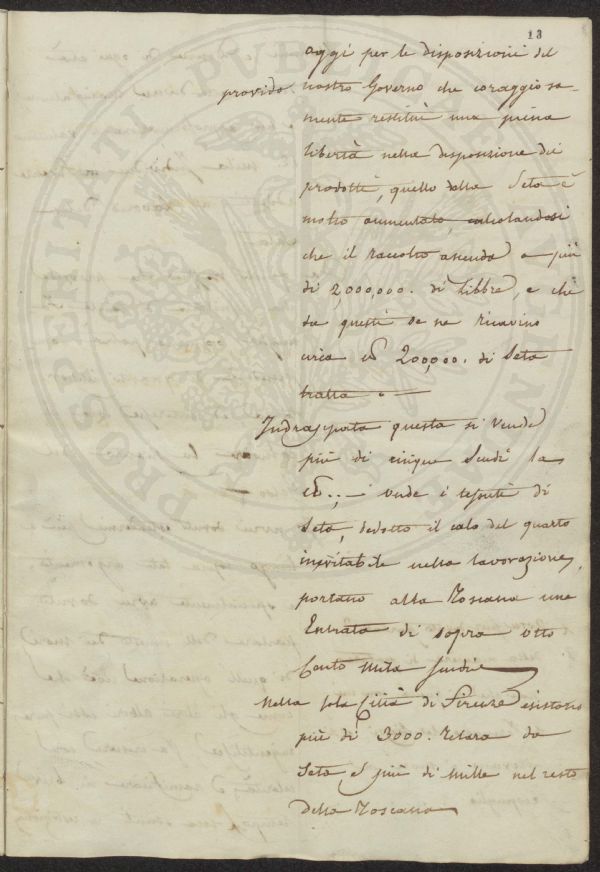 13
oggi per le disposizioni del
provido
nostro Governo che coraggiosa-
mente restituì una piena
libertà nella disposizione dei
prodotti, quello della Seta è
molto aumentato, calcolandosi
che il raccolto ascenda a più
di 2,000,000. di Libbre, e che
da questi se ne ricavino
circa 200,000. di Seta
tratta
questa si vende
più di cinque Scudi la
i tessuti di
Seta, dedotto il calo del quarto
inevitabile nella lavorazione,
portano alla Toscana una
Entrata di sopra otto
Cento Mila Scudi
Nella sola Città di Firenze esistono
più di 3000. Telara da
Seta e più di Mille nel resto
della Toscana
PROSPERITATI PUBLICAE